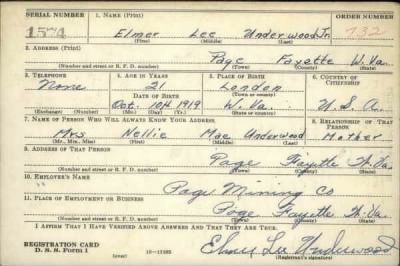 SERIAL NUMBER
1. NAME (Print)
ORDER NUMBER
1574
Elmer Lee Underwood Jr.
732
(First) (Middle) (Last)
2. ADDRESS (Print)
Page Fayette W. Va.
(Number and street or R. F. D. number) (Town) (County) (State)
3. TELEPHONE
4. AGE IN YEARS
5. PLACE OF BIRTH
6. COUNTRY OF CITIZENSHIP
None
21
London
DATE OF BIRTH
(Town or county)
Oct. 10th 1919
W. Va.
U. S. A.
(Exchange) (Number)
(Mo.) (Day) (Yr.)
(State or country)
7. NAME OF PERSON WHO WILL ALWAYS KNOW YOUR ADDRESS
8. RELATIONSHIP OF THAT PERSON
Mrs Nellie Mae Underwood
Mother
(Mr., Mrs., Miss) (First) (Middle) (Last)
9. ADDRESS OF THAT PERSON
Page Fayette W. Va.
(Number and street or R. F. D. number) (Town) (County) (State)
10. EMPLOYER'S NAME
Page Mining Co
11. PLACE OF EMPLOYMENT OR BUSINESS
Page Fayette W. Va.
(Number and street or R. F. D. number) (Town) (County) (State)
I AFFIRM THAT I HAVE VERIFIED ABOVE ANSWERS AND THAT THEY ARE TRUE.
REGISTRATION CARD
D. S. S. Form 1
(over)
Elmer Lee Underwood
(Registrant's signature)